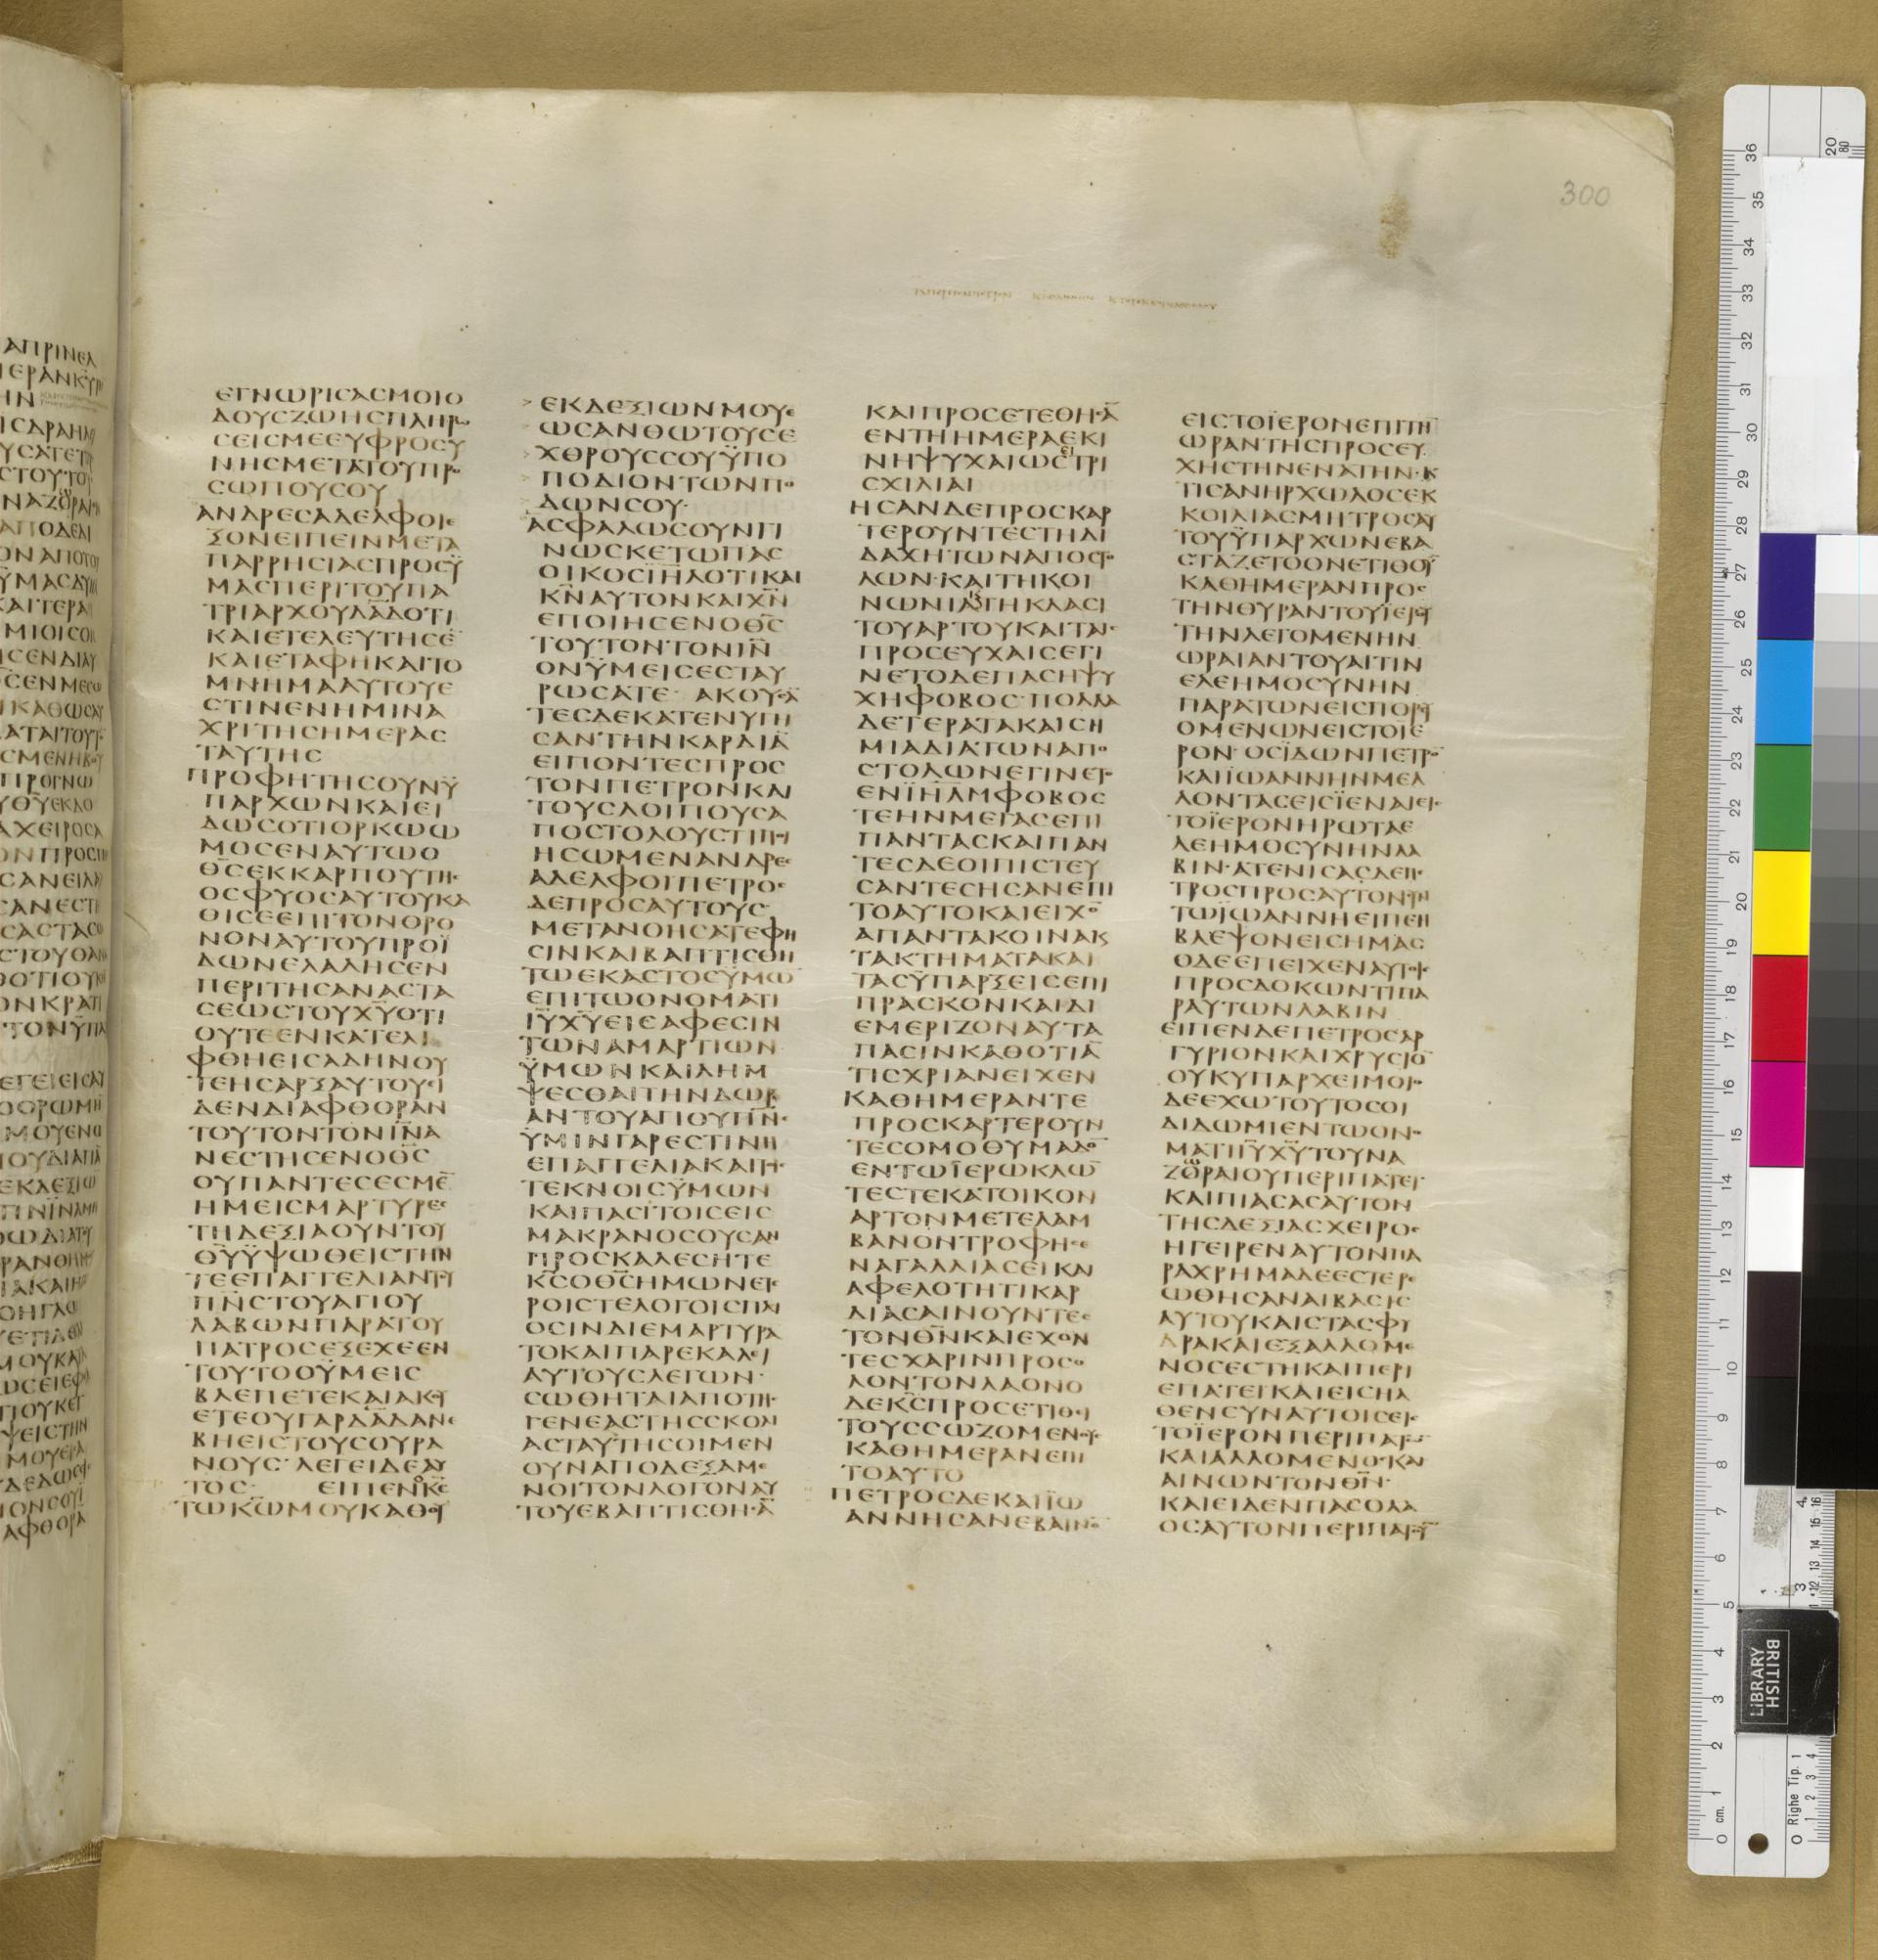 300
ΕΓΝΩΡΙϹΑϹΜΟΙΟ
ΔΟΥϹΖΩΗϹΠΛΗΡΩ
ϹΕΙϹΜΕΕΥΦΡΟϹΥ
ΝΗϹΜΕΤΑΤΟΥΠΡΟ
ϹΩΠΟΥϹΟΥ
ΑΝΔΡΕϹΑΔΕΛΦΟΙΕ
ΞΟΝΕΙΠΕΙΝΜΕΤΑ
ΠΑΡΡΗϹΙΑϹΠΡΟϹΫ
ΜΑϹΠΕΡΙΤΟΥΠΑ
ΤΡΙΑΡΧΟΥΔΑ̅Δ̅ΟΤΙ
ΚΑΙΕΤΕΛΕΥΤΗϹΕ̅
ΚΑΙΕΤΑΦΗΚΑΙΤΟ
ΜΝΗΜΑΑΥΤΟΥΕ
ϹΤΙΝΕΝΗΜΙΝΑ
ΧΡΙΤΗϹΗΜΕΡΑϹ
ΤΑΥΤΗϹ
ΠΡΟΦΗΤΗϹΟΥΝΫ
ΠΑΡΧΩΝΚΑΙΕΙ
ΔΩϹΟΤΙΟΡΚΩΩ
ΜΟϹΕΝΑΥΤΩΟ
Θ̅Ϲ̅ΕΚΚΑΡΠΟΥΤΗϹ
ΟϹΦΥΟϹΑΥΤΟΥΚΑ
ΘΙϹΕΕΠΙΤΟΝΘΡΟ
ΝΟΝΑΥΤΟΥΠΡΟΪ
ΔΩΝΕΛΑΛΗϹΕΝ
ΠΕΡΙΤΗϹΑΝΑϹΤΑ
ϹΕΩϹΤΟΥΧ̅Υ̅ΟΤΙ
ΟΥΤΕΕΝΚΑΤΕΛΙ
ΦΘΗΕΙϹΑΔΗΝΟΥ
ΤΕΗϹΑΡΞΑΥΤΟΥΕΙ
ΔΕΝΔΙΑΦΘΟΡΑΝ
ΤΟΥΤΟΝΤΟΝΙ̅Ν̅Α
ΝΕϹΤΗϹΕΝΟΘ̅Ϲ̅
ΟΥΠΑΝΤΕϹΕϹΜΕ̅
ΗΜΕΙϹΜΑΡΤΥΡΕϹ
ΤΗΔΕΞΙΑΟΥΝΤΟΥ
Θ̅Υ̅ΫΨΩΘΕΙϹΤΗΝ
ΤΕΕΠΑΓΓΕΛΙΑΝΤΟΥ
Π̅Ν̅Ϲ̅ΤΟΥΑΓΙΟΥ
ΛΑΒΩΝΠΑΡΑΤΟΥ
ΠΑΤΡΟϹΕΞΕΧΕΕΝ
ΤΟΥΤΟΟΫΜΕΙϹ
ΒΛΕΠΕΤΕΚΑΙΑΚΟΥ
ΕΤΕΟΥΓΑΡΔΑ̅Δ̅ΑΝΕ
ΒΗΕΙϹΤΟΥϹΟΥΡΑ
ΝΟΥϹ·ΛΕΓΕΙΔΕΑΥ
ΤΟϹ· ΕΙΠΕΝΟΚ̅Ϲ̅
ΤΩΚ̅Ω̅ΜΟΥΚΑΘΟΥ
>ΕΚΔΕΞΙΩΝΜΟΥΕ
>ΩϹΑΝΘΩΤΟΥϹΕ
>ΧΘΡΟΥϹϹΟΥΫΠΟ
>ΠΟΔΙΟΝΤΩΝΠΟ
>ΔΩΝϹΟΥ·
ΑϹΦΑΛΩϹΟΥΝΓΙ
ΝΩϹΚΕΤΩΠΑϹ
ΟΙΚΟϹΪ̅Η̅Λ̅ΟΤΙΚΑΙ
Κ̅Ν̅ΑΥΤΟΝΚΑΙΧ̅Ν̅
ΕΠΟΙΗϹΕΝΟΘ̅Ϲ̅
ΤΟΥΤΟΝΤΟΝΙ̅Ν̅
ΟΝΫΜΕΙϹΕϹΤΑΥ
ΡΩϹΑΤΕ· ΑΚΟΥϹΑ̅
ΤΕϹΔΕΚΑΤΕΝΥΓΗ
ϹΑΝΤΗΝΚΑΡΔΙΑ̅
ΕΙΠΟΝΤΕϹΠΡΟϹ
ΤΟΝΠΕΤΡΟΝΚΑΙ
ΤΟΥϹΛΟΙΠΟΥϹΑ
ΠΟϹΤΟΛΟΥϹΤΙΠΟΙ
ΗϹΩΜΕΝΑΝΔΡΕϹ
ΑΔΕΛΦΟΙΠΕΤΡΟϹ
ΔΕΠΡΟϹΑΥΤΟΥϹ
ΜΕΤΑΝΟΗϹΑΤΕΦΗ
ϹΙΝΚΑΙΒΑΠΤΙϹΘΗ
ΤΩΕΚΑϹΤΟϹΫΜΩ̅
ΕΠΙΤΩΟΝΟΜΑΤΙ
Ι̅Υ̅Χ̅Υ̅ΕΙϹΑΦΕϹΙΝ
ΤΩΝΑΜΑΡΤΙΩΝ
ΫΜΩΝΚΑΙΛΗΜ
ΨΕϹΘΑΙΤΗΝΔΩΡΕ
ΑΝΤΟΥΑΓΙΟΥΠ̅Ν̅Ϲ̅
ΫΜΙΝΓΑΡΕϹΤΙΝΗ
ΕΠΑΓΓΕΛΙΑΚΑΙΤΟΙϹ
ΤΕΚΝΟΙϹΫΜΩΝ
ΚΑΙΠΑϹΙΤΟΙϹΕΙϹ
ΜΑΚΡΑΝΟϹΟΥϹΑΝ
ΠΡΟϹΚΑΛΕϹΗΤΕ
Κ̅Ϲ̅ΟΘ̅Ϲ̅ΗΜΩΝΕΤΕ
ΡΟΙϹΤΕΛΟΓΟΙϹΠΛΙ
ΟϹΙΝΔΙΕΜΑΡΤΥΡΑ
ΤΟΚΑΙΠΑΡΕΚΑΛΕΙ
ΑΥΤΟΥϹΛΕΓΩΝ·
ϹΩΘΗΤΑΙΑΠΟΤΗϹ
ΓΕΝΕΑϹΤΗϹϹΚΟΛΙ
ΑϹΤΑΥΤΗϹΟΙΜΕΝ
ΟΥΝΑΠΟΔΕΞΑΜΕ
ΝΟΙΤΟΝΛΟΓΟΝΑΥ
ΤΟΥΕΒΑΠΤΙϹΘΗϹΑ̅
ΚΑΙΠΡΟϹΕΤΕΘΗϹΑ̅
ΕΝΤΗΗΜΕΡΑΕΚΙ
ΝΗΨΥΧΑΙΩϹΕΙΤΡΙ
ϹΧΙΛΙΑΙ
ΗϹΑΝΔΕΠΡΟϹΚΑΡ
ΤΕΡΟΥΝΤΕϹΤΗΔΙ
ΔΑΧΗΤΩΝΑΠΟϹΤΟ
ΛΩΝ·ΚΑΙΤΗΚΟΙ
ΝΩΝΙΑΤΗΚΛΑϹΙ
ΤΟΥΑΡΤΟΥΚΑΙΤΑΙϹ
ΠΡΟϹΕΥΧΑΙϹΕΓΙ
ΝΕΤΟΔΕΠΑϹΗΨΥ
ΧΗΦΟΒΟϹ·ΠΟΛΛΑ
ΔΕΤΕΡΑΤΑΚΑΙϹΗ
ΜΙΑΔΙΑΤΩΝΑΠΟ
ϹΤΟΛΩΝΕΓΙΝΕΤΟ
ΕΝΪ̅Η̅Λ̅Μ̅ΦΟΒΟϹ
ΤΕΗΝΜΕΓΑϹΕΠΙ
ΠΑΝΤΑϹΚΑΙΠΑΝ
ΤΕϹΔΕΟΙΠΙϹΤΕΥ
ϹΑΝΤΕϹΗϹΑΝΕΠΙ
ΤΟΑΥΤΟΚΑΙΕΙΧΟ̅
ΑΠΑΝΤΑΚΟΙΝΑΚϏ
ΤΑΚΤΗΜΑΤΑΚΑΙ
ΤΑϹΫΠΑΡΞΕΙϹΕΠΙ
ΠΡΑϹΚΟΝΚΑΙΔΙ
ΕΜΕΡΙΖΟΝΑΥΤΑ
ΠΑϹΙΝΚΑΘΟΤΙΑ̅
ΤΙϹΧΡΙΑΝΕΙΧΕΝ
ΚΑΘΗΜΕΡΑΝΤΕ
ΠΡΟϹΚΑΡΤΕΡΟΥΝ
ΤΕϹΟΜΟΘΥΜΑΔΟ̅
ΕΝΤΩΪΕΡΩΚΛΩ̅
ΤΕϹΤΕΚΑΤΟΙΚΟΝ
ΑΡΤΟΝΜΕΤΕΛΑΜ
ΒΑΝΟΝΤΡΟΦΗϹΕ
ΝΑΓΑΛΛΙΑϹΕΙΚΑΙ
ΑΦΕΛΟΤΗΤΙΚΑΡ
ΔΙΑϹΑΙΝΟΥΝΤΕϹ
ΤΟΝΘ̅Ν̅ΚΑΙΕΧΟΝ
ΤΕϹΧΑΡΙΝΠΡΟϹΟ
ΛΟΝΤΟΝΛΑΟΝΟ
ΔΕΚ̅Ϲ̅ΠΡΟϹΕΤΙΘΕΙ
ΤΟΥϹϹΩΖΟΜΕΝΟΥϹ
ΚΑΘΗΜΕΡΑΝΕΠΙ
ΤΟΑΥΤΟ
ΠΕΤΡΟϹΔΕΚΑΙΪΩ
ΑΝΝΗϹΑΝΕΒΑΙΝΟ̅
ΕΙϹΤΟΪΕΡΟΝΕΠΙΤΗ̅
ΩΡΑΝΤΗϹΠΡΟϹΕΥ
ΧΗϹΤΗΝΕΝΑΤΗΝ·Κ
ΤΙϹΑΝΗΡΧΩΛΟϹΕΚ
ΚΟΙΛΙΑϹΜΗΤΡΟϹΑΥ
ΤΟΥΫΠΑΡΧΩΝΕΒΑ
ϹΤΑΖΕΤΟΟΝΕΤΙΘΟΥ̅
ΚΑΘΗΜΕΡΑΝΠΡΟϹ
ΤΗΝΘΥΡΑΝΤΟΥΪΕΡΟΥ
ΤΗΝΛΕΓΟΜΕΝΗΝ
ΩΡΑΙΑΝΤΟΥΑΙΤΙΝ
ΕΛΕΗΜΟϹΥΝΗΝ
ΠΑΡΑΤΩΝΕΙϹΠΟΡΕΥ
ΟΜΕΝΩΝΕΙϹΤΟΙΕ
ΡΟΝ·ΟϹΪΔΩΝΠΕΤΡΟ̅
ΚΑΙΪΩΑΝΝΗΝΜΕΛ
ΛΟΝΤΑϹΕΙϹΪΕΝΑΙΕΙϹ
ΤΟΪΕΡΟΝΗΡΩΤΑΕ
ΛΕΗΜΟϹΥΝΗΝΛΑ
ΒΙΝ·ΑΤΕΝΙϹΑϹΔΕΠΕ
ΤΡΟϹΠΡΟϹΑΥΤΟΝϹΥΝ
ΤΩΪΩΑΝΝΗΕΙΠΕΝ
ΒΛΕΨΟΝΕΙϹΗΜΑϹ
ΟΔΕΕΠΕΙΧΕΝΑΥΤΟΙϹ
ΠΡΟϹΔΟΚΩΝΤΙΠΑ
ΡΑΥΤΩΝΛΑΒΙΝ
ΕΙΠΕΝΔΕΠΕΤΡΟϹΑΡ
ΓΥΡΙΟΝΚΑΙΧΡΥϹΙΟ̅
ΟΥΚΥΠΑΡΧΕΙΜΟΙΟ
ΔΕΕΧΩΤΟΥΤΟϹΟΙ
ΔΙΔΩΜΙΕΝΤΩΟΝΟ
ΜΑΤΙΙ̅Υ̅Χ̅Υ̅ΤΟΥΝΑ
ΖΩΡΑΙΟΥΠΕΡΙΠΑΤΕΙ·
ΚΑΙΠΙΑϹΑϹΑΥΤΟΝ
ΤΗϹΔΕΞΙΑϹΧΕΙΡΟϹ
ΗΓΕΙΡΕΝΑΥΤΟΝΠΑ
ΡΑΧΡΗΜΑΔΕΕϹΤΕΡΕ
ΩΘΗϹΑΝΑΙΒΑϹΙϹ
ΑΥΤΟΥΚΑΙϹΤΑϹΦΥ
ΔΡΑΚΑΙΕΞΑΛΛΟΜΕ
ΝΟϹΕϹΤΗΚΑΙΠΕΡΙ
ΕΠΑΤΕΙΚΑΙΕΙϹΗΛ
ΘΕΝϹΥΝΑΥΤΟΙϹΕΙϹ
ΤΟΪΕΡΟΝΠΕΡΙΠΑΤΩ̅
ΚΑΙΑΛΛΟΜΕΝΟϹΚΑΙ
ΑΙΝΩΝΤΟΝΘ̅Ν̅·
ΚΑΙΕΙΔΕΝΠΑϹΟΛΑ
ΟϹΑΥΤΟΝΠΕΡΙΠΑΤΟΥ̅
BRITISH
LIBRARY